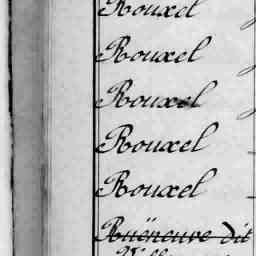 Rouxel
Rouxel
Rouxel
Rouxel
Rouxel
Ruëneuve dit